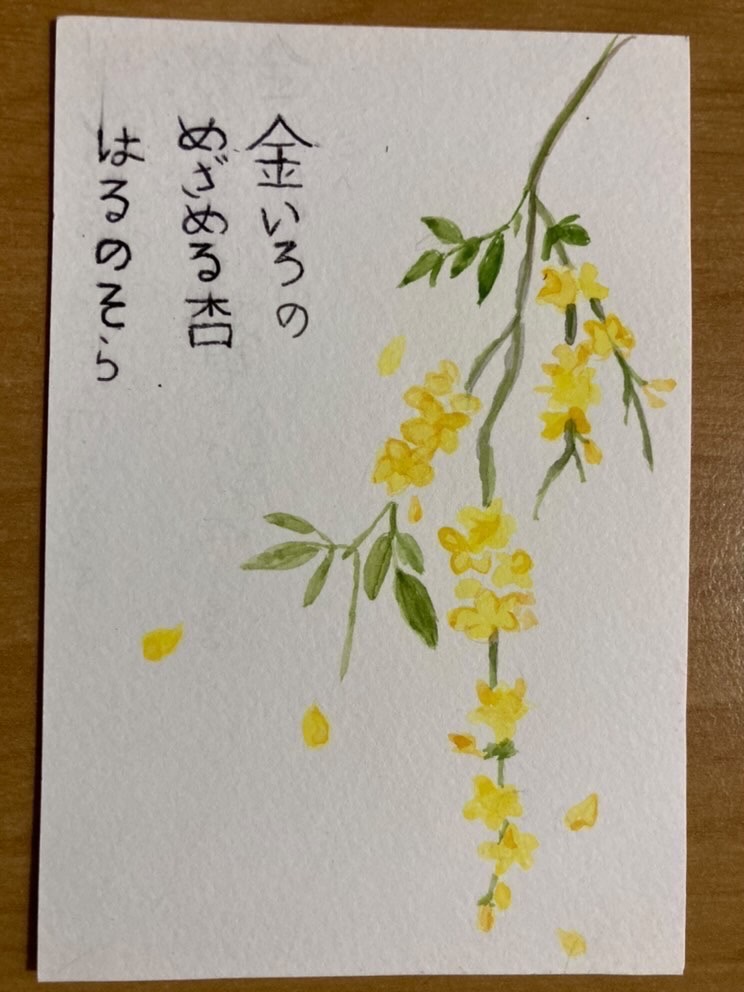 金いろの
めざめる杏
はるのそら